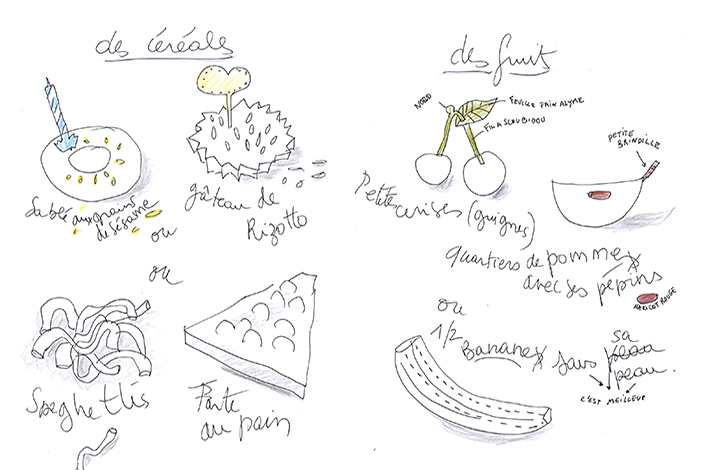 des céréales
Sablé aux grains
de sésame
ou
gâteau de
Rizotto
ou
Speghettis
Parte
au pain
des fruit
NOEUD
FEUILLE PAIN AZYME
FIL A SCOUBIDOU
Petites cerises (guignes)
PETITE
BRINDILLE
quartiers de pomme
avec ses pépins
HARICOT ROUGE
ou
1/2 Banane sans sa
peau.
C'EST MEILLEUR